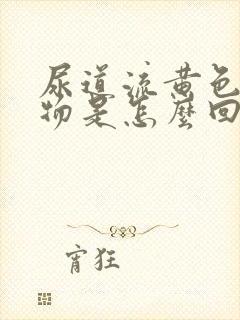 尿道流黄色
物是怎麼回
宵狂